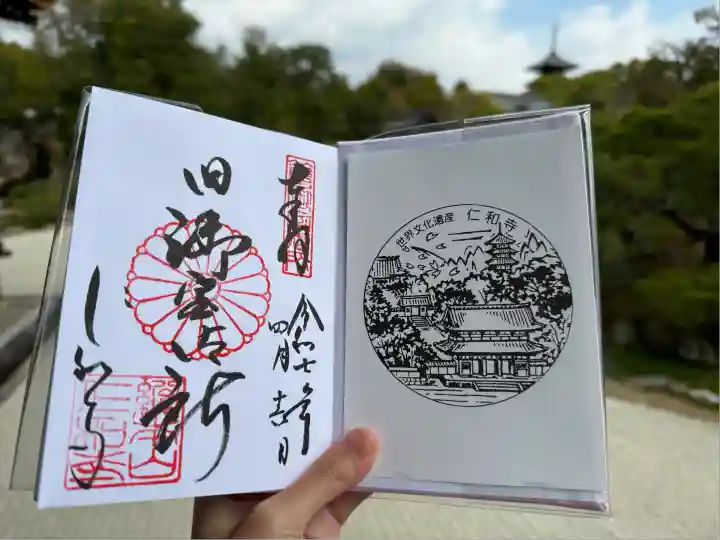 奉拝
令和七年
四月吉日
旧御室御所
世界文化遺産 仁和寺